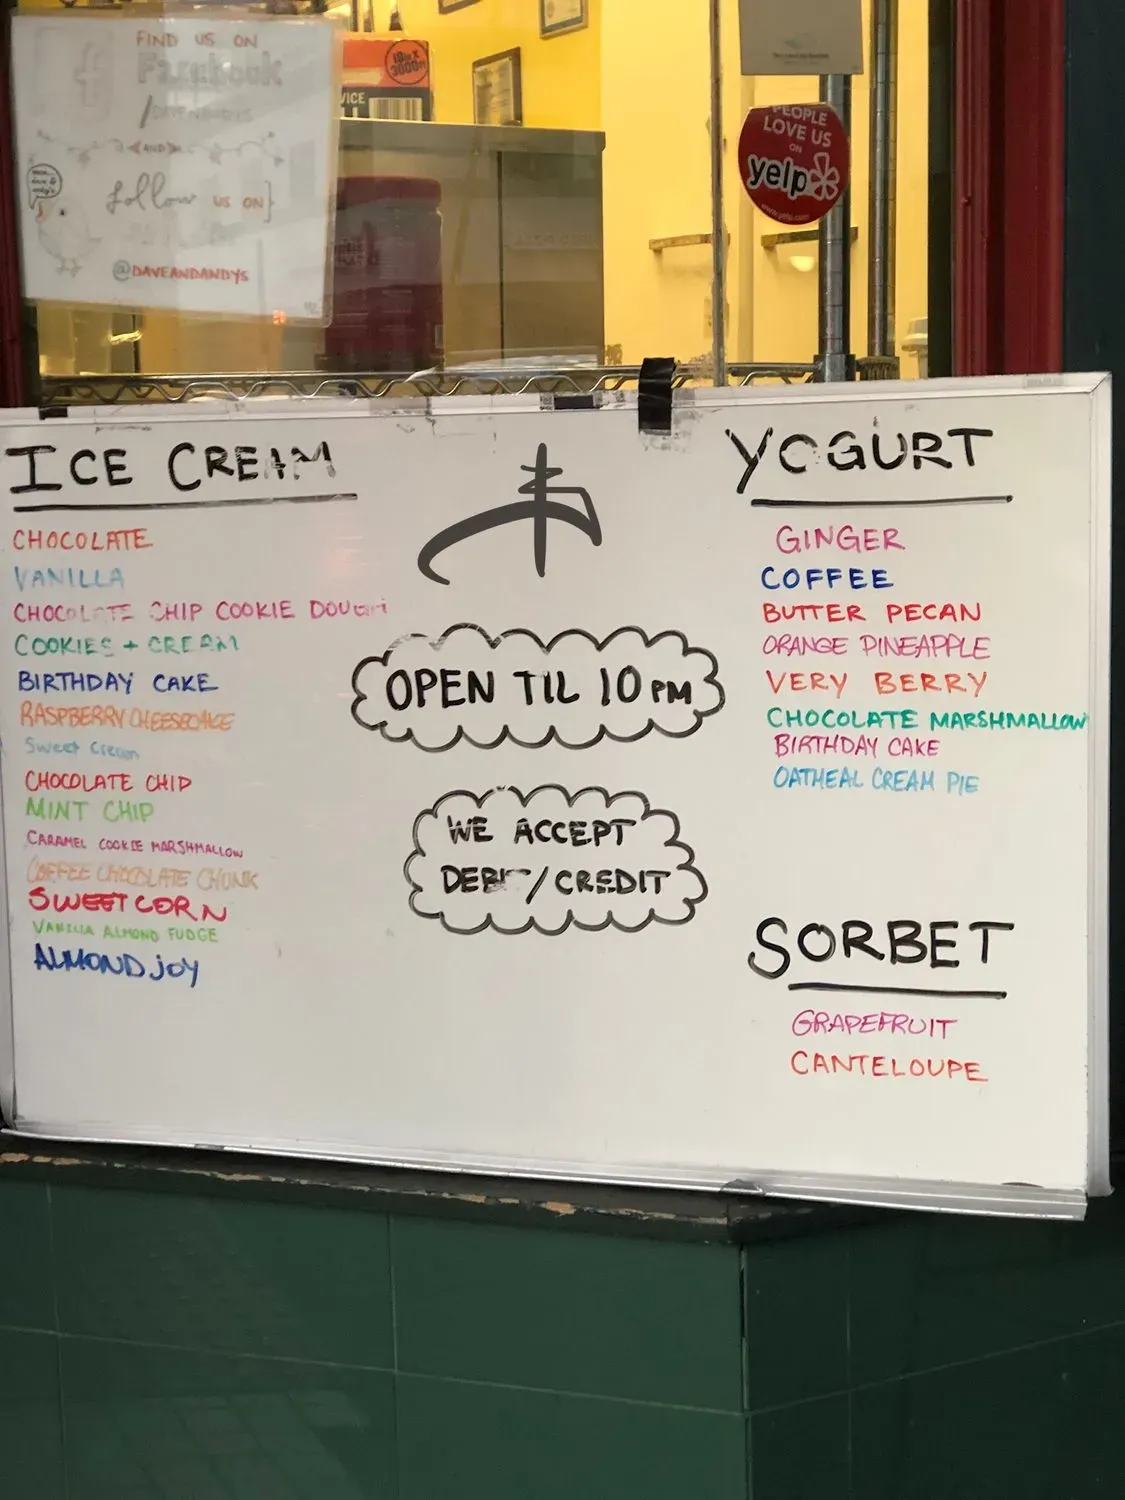 FIND US ON
Facebook
/DAVEANDANDYS
AND
follow US ON
@DAVEANDANDYS
18in X
3000ft
VICE
PEOPLE
LOVE US
ON
yelp
www.yelp.com
ICE CREAM
CHOCOLATE
VANILLA
CHOCOLATE CHIP COOKIE DOUGH
COOKIES + CREAM
BIRTHDAY CAKE
RASPBERRY CHEESECAKE
Sweet Cream
CHOCOLATE CHIP
MINT CHIP
CARAMEL COOKIE MARSHMALLOW
COFFEE CHOCOLATE CHUNK
SWEET CORN
VANILLA ALMOND FUDGE
ALMOND JOY
OPEN TIL 10 PM
WE ACCEPT
DEBIT/CREDIT
YOGURT
GINGER
COFFEE
BUTTER PECAN
ORANGE PINEAPPLE
VERY BERRY
CHOCOLATE MARSHMALLOW
BIRTHDAY CAKE
OATMEAL CREAM PIE
SORBET
GRAPEFRUIT
CANTELOUPE